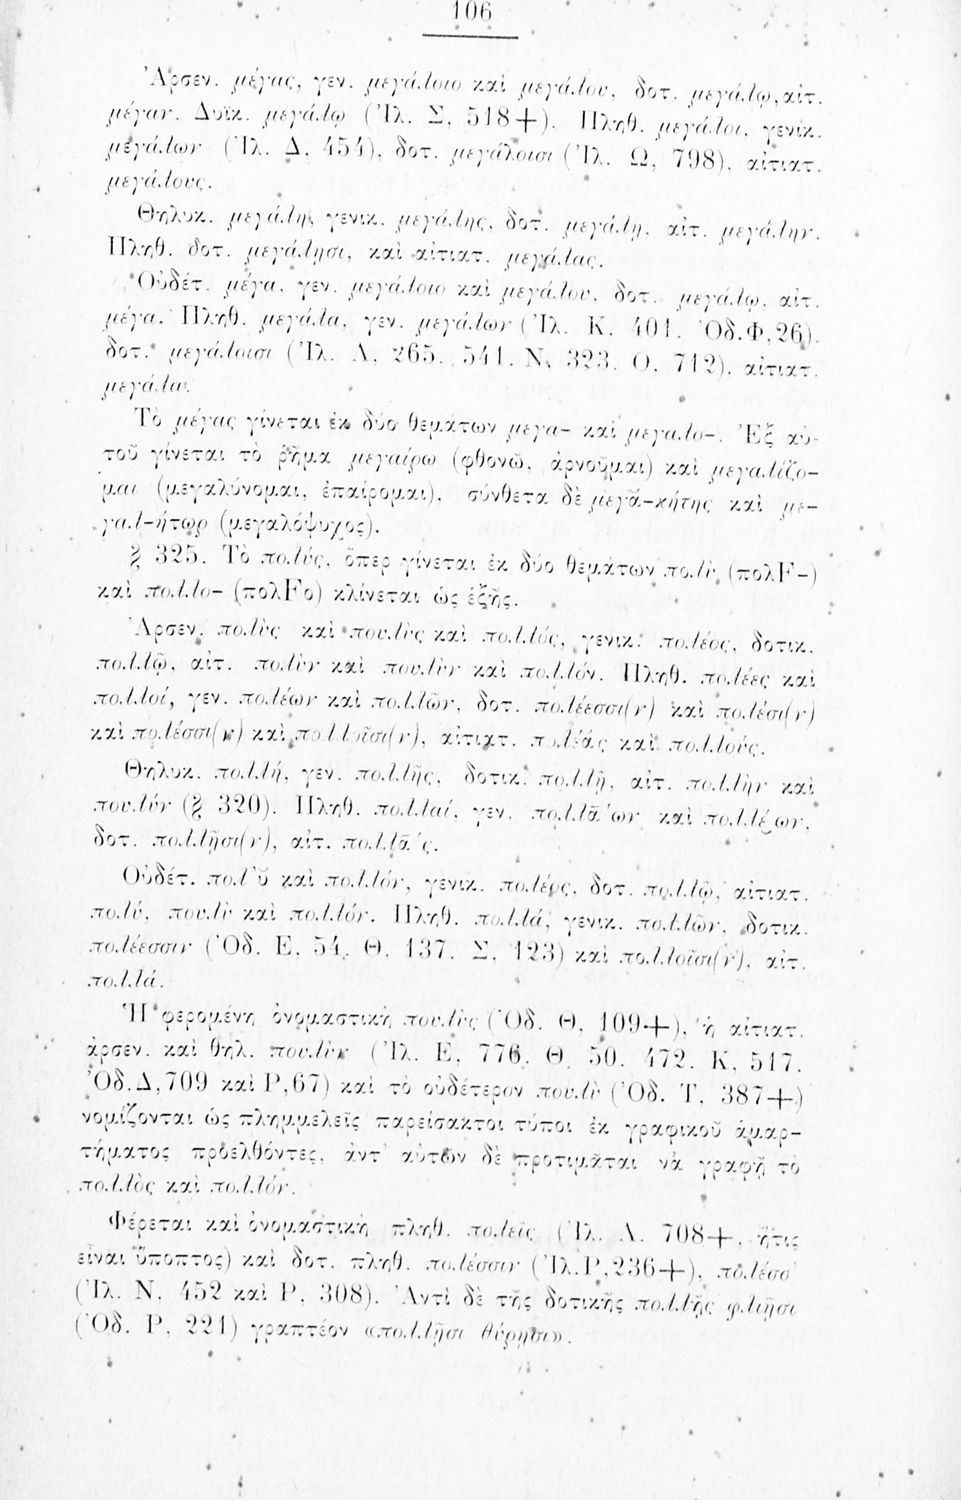 106
Ἀρσεν. μέγας, γεν. μεγάλοιο καὶ μεγάλου, δοτ. μεγάλῳ, αἰτ.
μέγαν. Δυϊκ. μεγάλω (Ἰλ. Σ, 518+). Πληθ. μεγάλοι, γενικ.
μεγάλων (Ἰλ. Δ, 454), δοτ. μεγάλοισι (Ἰλ. Ω, 798), αἰτιατ.
μεγάλους.
Θηλυκ. μεγάλη, γενικ. μεγάλης, δοτ. μεγάλῃ, αἰτ. μεγάλην.
Πληθ. δοτ. μεγάλῃσι, καὶ αἰτιατ. μεγάλας.
Οὐδέτ. μέγα, γεν. μεγάλοιο καὶ μεγάλου, δοτ. μεγάλῳ, αἰτ.
μέγα. Πληθ. μεγάλα, γεν. μεγάλων (Ἰλ. Κ, 401. Ὀδ. Φ, 26).
δοτ. μεγάλοισι (Ἰλ. Λ, 265. 541. Ν, 323. Ο, 712), αἰτιατ.
μεγάλα.
Τὸ μέγας γίνεται ἐκ δύο θεμάτων μεγα- καὶ μεγαλο-. Ἐξ αὐ-
τοῦ γίνεται τὸ ῥῆμα μεγαίρω (φθονῶ, ἀρνοῦμαι) καὶ μεγαλίζο-
μαι (μεγαλύνομαι, ἐπαίρομαι), σύνθετα δὲ μεγᾰ-κήτης καὶ με-
γαλ-ήτωρ (μεγαλόψυχος).
§ 325. Τὸ πολύς, ὅπερ γίνεται ἐκ δύο θεμάτων πολὺ (πολF-)
καὶ πολλο- (πολFο) κλίνεται ὡς ἑξῆς.
Ἀρσεν. πολὺς καὶ πουλὺς καὶ πολλός, γενικ. πολέος, δοτικ.
πολλῷ, αἰτ. πολὺν καὶ πουλὺν καὶ πολλόν. Πληθ. πολέες καὶ
πολλοί, γεν. πολέων καὶ πολλῶν, δοτ. πολέεσσι(ν) καὶ πολέσι(ν)
καὶ πολέσσι(ν) καὶ πολλοῖσι(ν), αἰτιατ. πολέάς καὶ πολλούς.
Θηλυκ. πολλή, γεν. πολλῆς, δοτικ. πολλῇ, αἰτ. πολλὴν καὶ
πουλύν (§ 320). Πληθ. πολλαί, γεν. πολλᾱ́ων καὶ πολλέων,
δοτ. πολλῇσι(ν), αἰτ. πολλᾱ́ς.
Οὐδέτ. πολῠ́ καὶ πολλόν, γενικ. πολέος, δοτ. πολλῷ, αἰτιατ.
πολύ, πουλὺ καὶ πολλόν. Πληθ. πολλά, γενικ. πολλῶν, δοτικ.
πολέεσσιν (Ὀδ. Ε, 54. Θ, 137. Σ, 123) καὶ πολλοῖσι(ν), αἰτ.
πολλά.
Ἡ φερομένη ὀνομαστικὴ πουλὺς (Ὀδ. Θ, 109+), ἡ αἰτιατ.
ἀρσεν. καὶ θηλ. πουλὺν (Ἰλ. Ε, 776. Θ, 50. 472. Κ, 517.
Ὀδ. Δ, 709 καὶ Ρ, 67) καὶ τὸ οὐδέτερον πουλὺ (Ὀδ. Τ, 387+)
νομίζονται ὡς πλημμελεῖς παρείσακτοι τύποι ἐκ γραφικοῦ ἁμαρ-
τήματος προελθόντες, ἀντ' αὐτῶν δὲ προτιμᾶται νὰ γραφῇ τὸ
πολλὸς καὶ πολλόν.
Φέρεται καὶ ὀνομαστικὴ πληθ. πολεῖς (Ἰλ. Λ. 708+, ἥτις
εἶναι ὕποπτος) καὶ δοτ. πληθ. πολέσσιν (Ἰλ. Ρ, 236+), πολέσσ'
(Ἰλ. Ν, 452 καὶ Ρ, 308). Ἀντὶ δὲ τῆς δοτικῆς πολλῇς φλιῇσι
(Ὀδ. Ρ, 221) γραπτέον «πολλῇσι θύρῃσι».